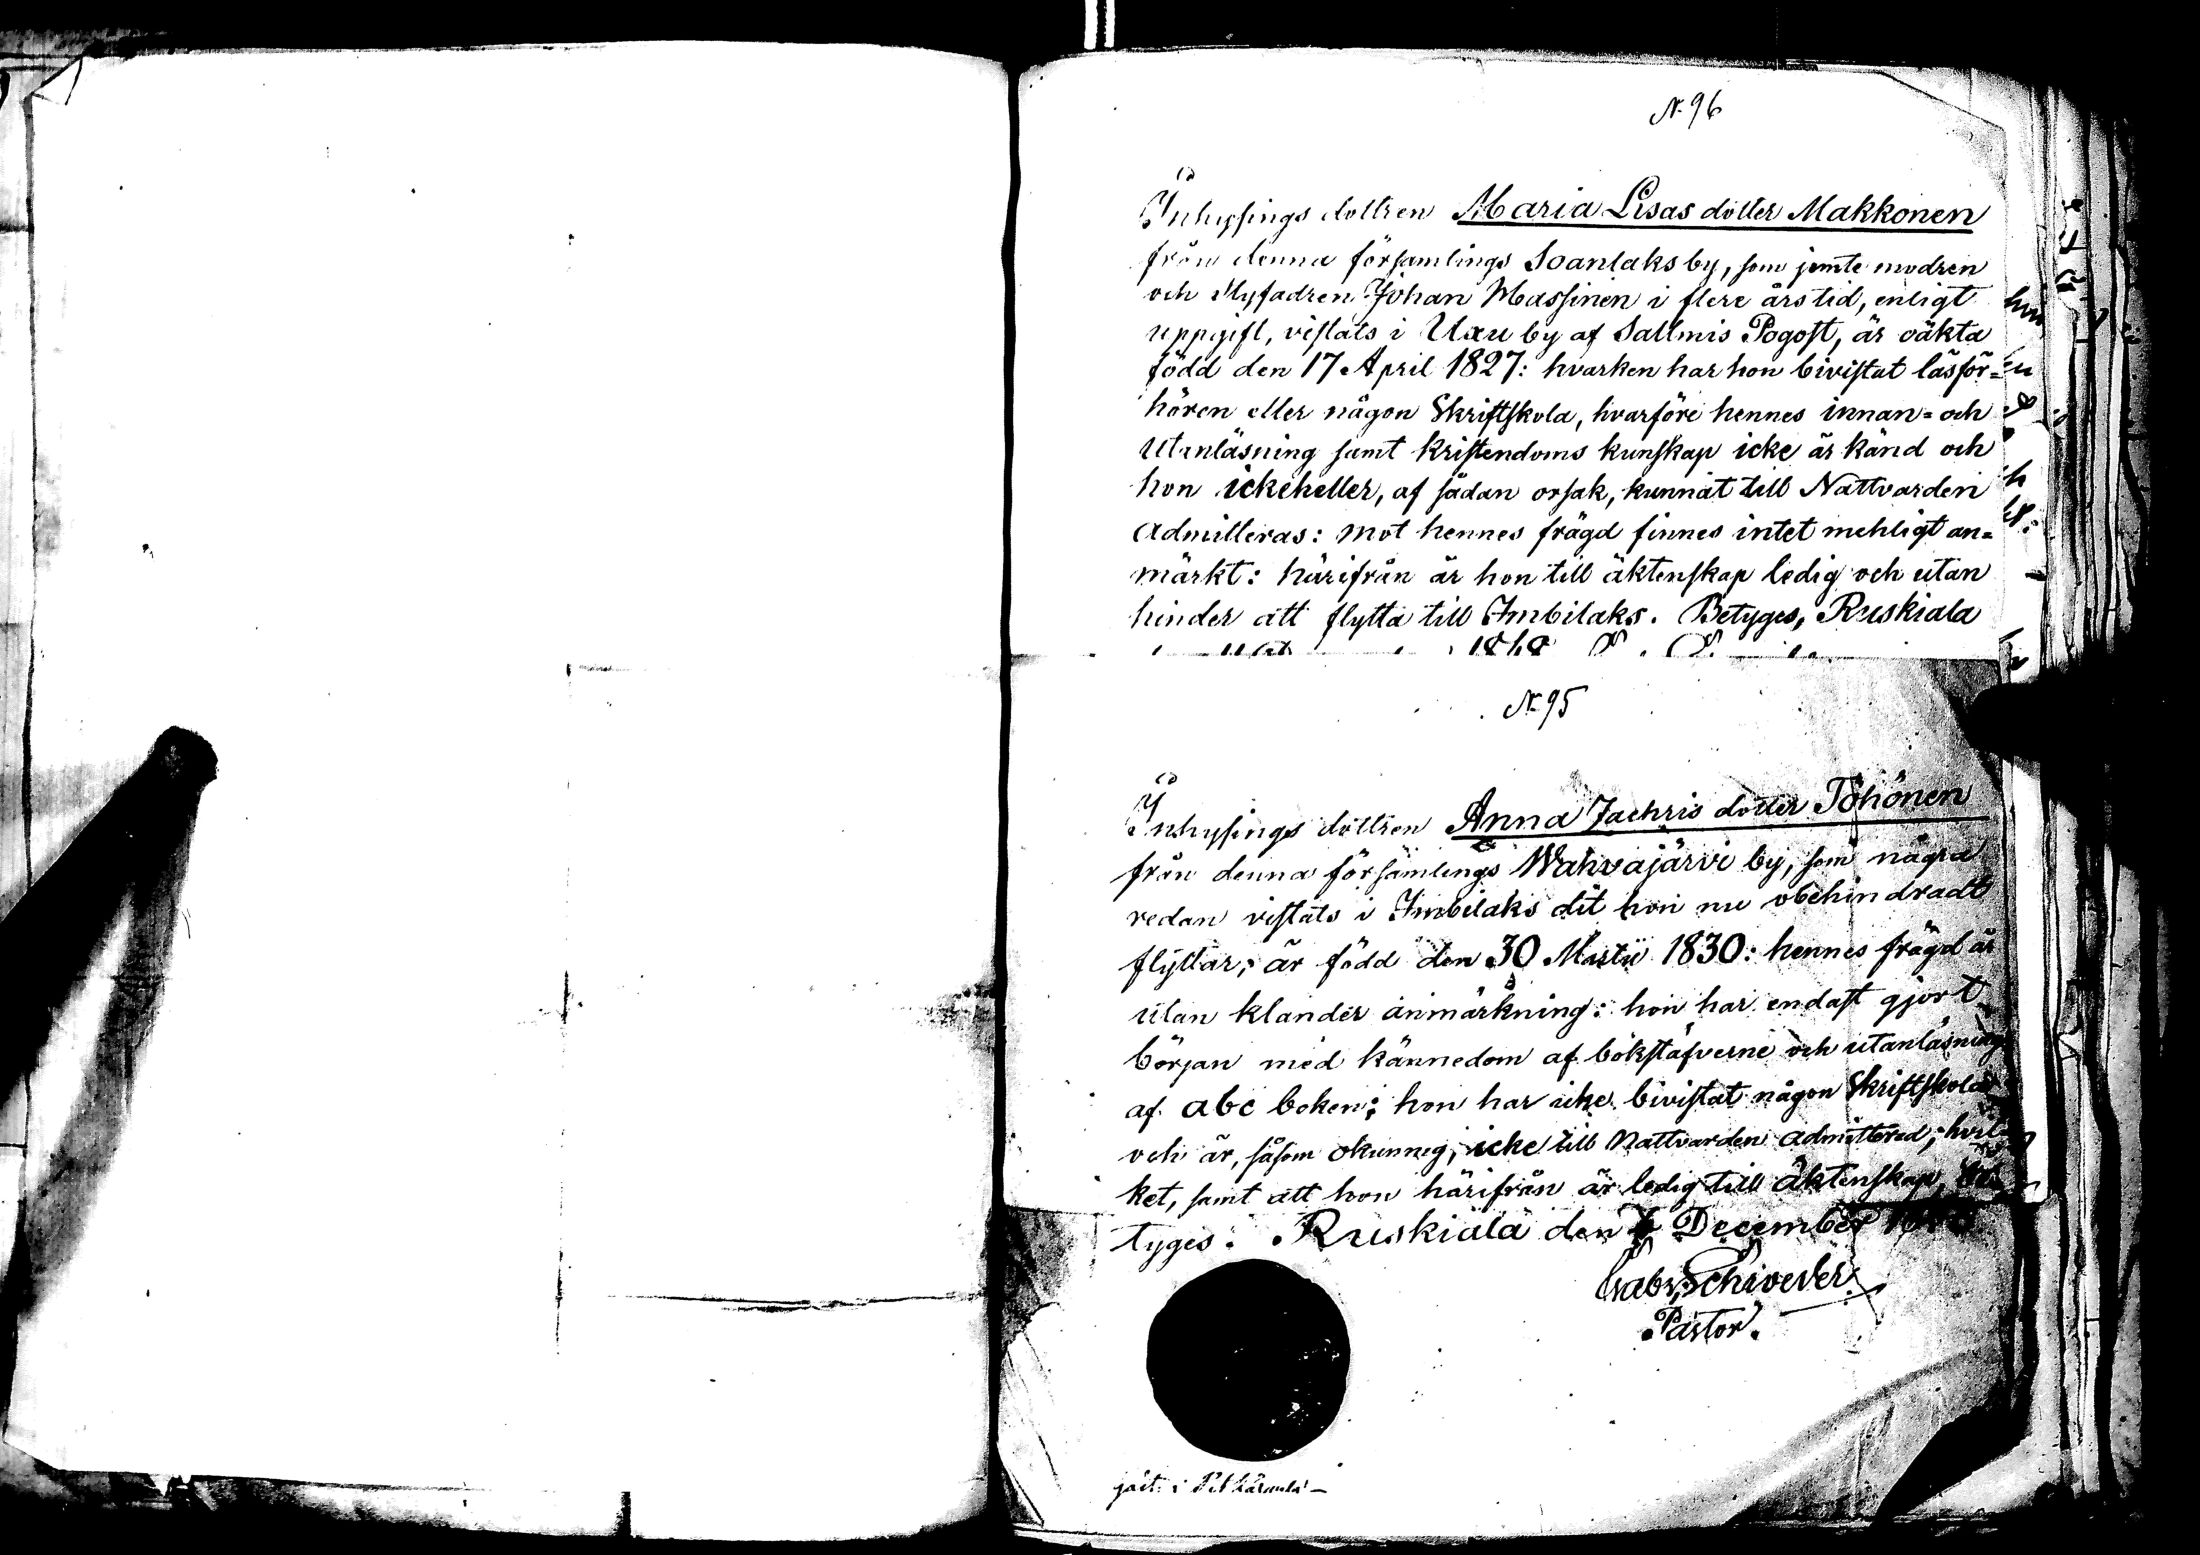 N. 96
Inhysings dottren Maria Lisas dotter Makkonen
från denna församlings Soanlaks by, som jemte modren
och styfadren Johan Massinen i flere års tid, enligt
uppgift, vistats i Uxu by af Sallmis Pogost, är oäkta
född den 17 April 1827: hvarken har hon bivistat läsför=
hören eller någon Skriftskola, hvarföre hennes innan= och
utanläsning samt kristendoms kunskap icke är känd och
hon ickeheller, af sådan orsak, kunnat till Nattvarden
admitteras: mot hennes frägd finnes intet mehligt an=
märkt: härifrån är hon till äktenskap ledig och utan
hinder att flytta till Imbilaks. Betyges, Ruskiala
N. 95
Inhysings dottren Anna Zachris dotter Töhönen
från denna församlings Wahvajärvi by, som några
redan vistats i Imbilaks dit hon nu obehindradt
flyttar, är född den 30 Martii 1830: hennes frägd är
utan klander anmärkning: hon har endast gjort
början med kännedom af bokstäfverne och utanläsning
af abc boken; hon har icke bivistat någon Skriftskola
och är, såsom okunnig, icke till Nattvarden admitterad; hvil=
ket, samt att hon härifrån är ledig till äktenskap, be
tyges. Ruskiala den December
Gabr. Schivever
Pastor.
i Pitkäranta